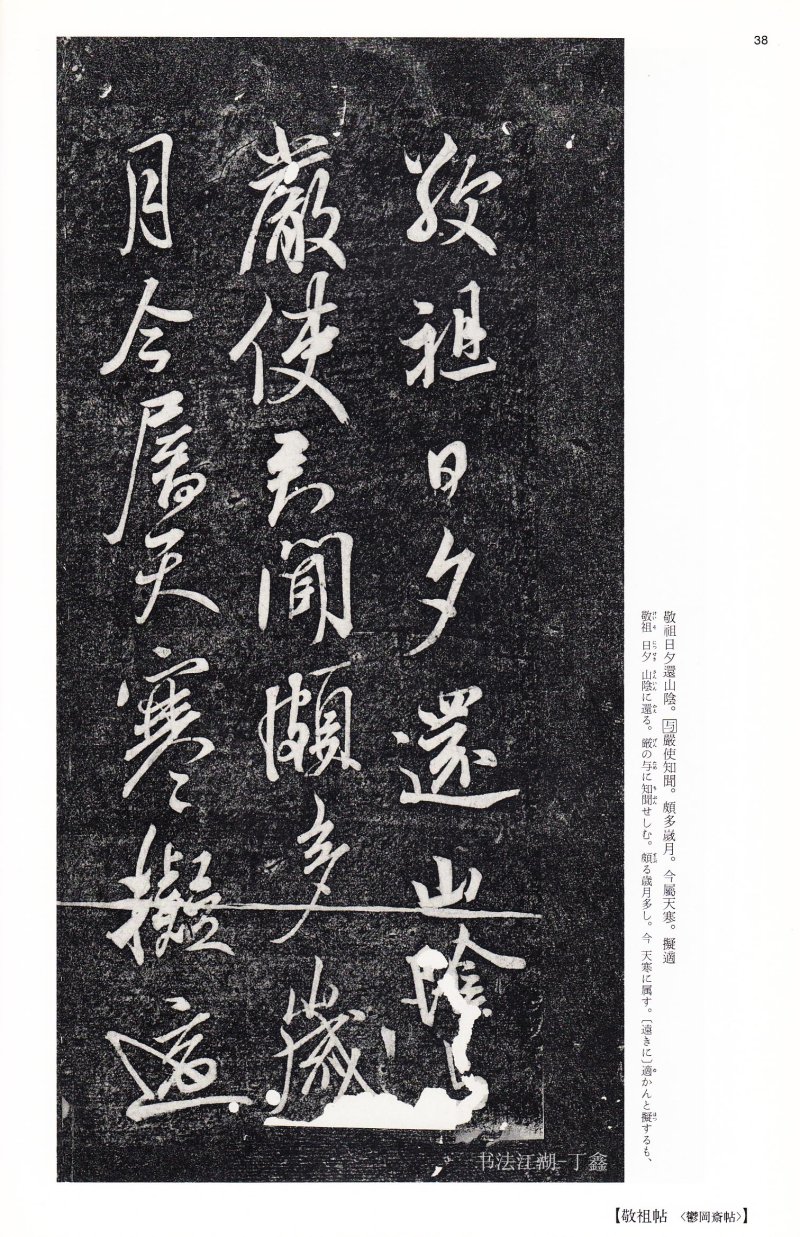 38
敬祖日夕還山陰
嚴使君聞頗多歲
月今属天寒擬適
敬祖日夕還山陰。与嚴使知聞。頗多歲月。今屬天寒。擬適
敬祖 日夕 山陰に還る。厳の与に知聞せしむ。頗る歳月多し。今 天寒に属す。〔遠きに〕適かんと擬するも、
书法江湖-丁鑫
【敬祖帖〈鬱岡斎帖〉】